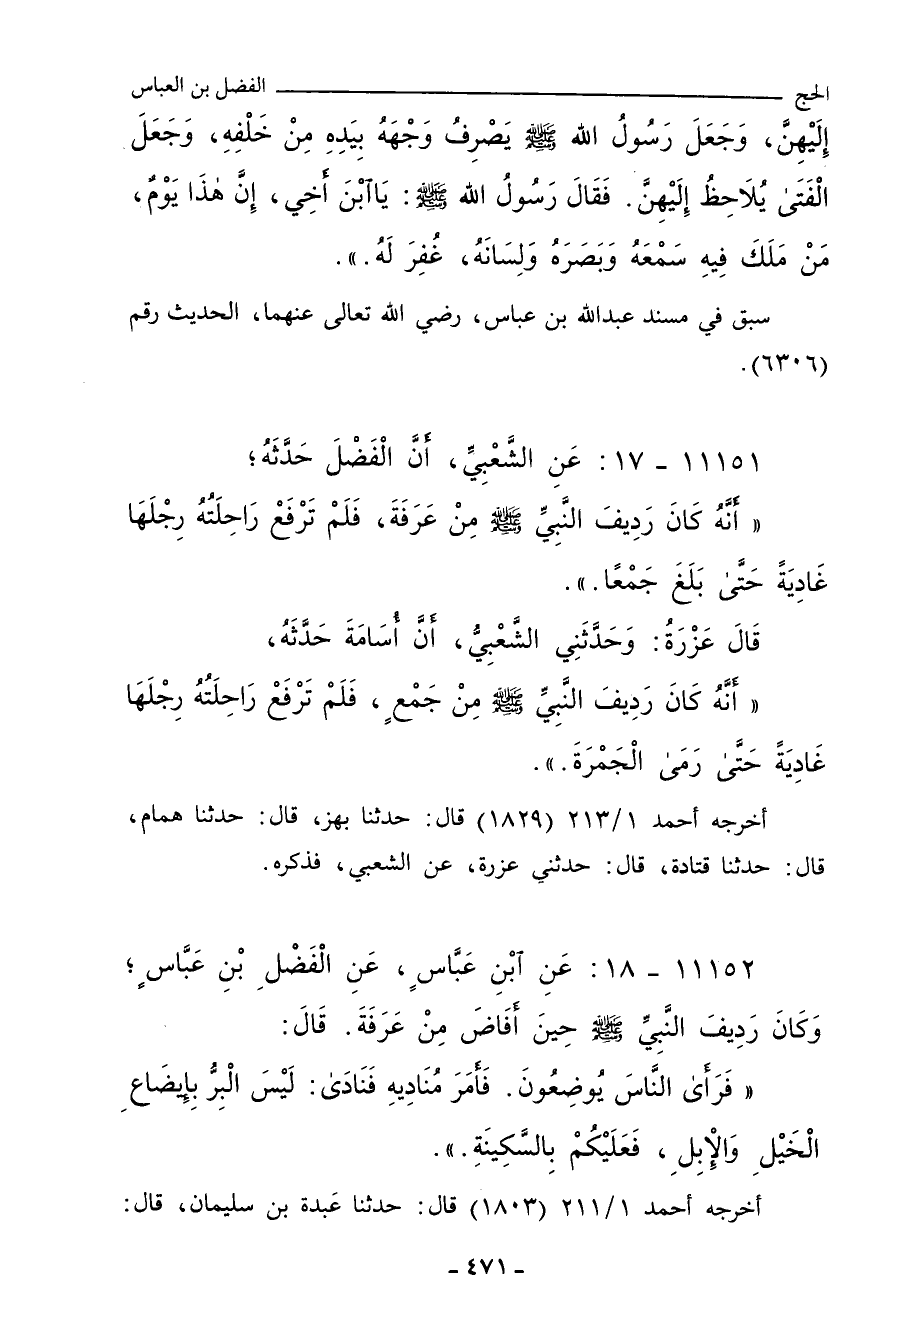 الحج ــــــــــــــــــــــــــــــــــــــــ الفضل بن العباس
إِلَيْهِنَّ، وَجَعَلَ رَسُولُ الله ﷺ يَصْرِفُ وَجْهَهُ بِيَدِهِ مِنْ خَلْفِهِ، وَجَعَلَ
الْفَتَىٰ يُلَاحِظُ إِلَيْهِنَّ. فَقَالَ رَسُولُ الله ﷺ: يَاآبْنَ أَخِي، إِنَّ هٰذَا يَوْمٌ،
مَنْ مَلَكَ فِيهِ سَمْعَهُ وَبَصَرَهُ وَلِسَانَهُ، غُفِرَ لَهُ.».
سبق في مسند عبدالله بن عباس، رضي الله تعالى عنهما، الحديث رقم
(٦٣٠٦).
١١١٥١ - ١٧: عَنِ الشَّعْبِيِّ، أَنَّ الْفَضْلَ حَدَّثَهُ؛
« أَنَّهُ كَانَ رَدِيفَ النَّبِيِّ ﷺ مِنْ عَرَفَةَ، فَلَمْ تَرْفَعْ رَاحِلَتُهُ رِجْلَهَا
غَادِيَةً حَتَّىٰ بَلَغَ جَمْعًا.».
قَالَ عَزْرَةُ: وَحَدَّثَنِي الشَّعْبِيُّ، أَنَّ أُسَامَةَ حَدَّثَهُ،
« أَنَّهُ كَانَ رَدِيفَ النَّبِيِّ ﷺ مِنْ جَمْعٍ، فَلَمْ تَرْفَعْ رَاحِلَتُهُ رِجْلَهَا
غَادِيَةً حَتَّىٰ رَمَىٰ الْجَمْرَةَ.».
أخرجه أحمد ٢١٣/١ (١٨٢٩) قال: حدثنا بهز، قال: حدثنا همام،
قال: حدثنا قتادة، قال: حدثني عزرة، عن الشعبي، فذكره.
١١١٥٢ - ١٨: عَنِ ٱبْنِ عَبَّاسٍ، عَنِ الْفَضْلِ بْنِ عَبَّاسٍ؛
وَكَانَ رَدِيفَ النَّبِيِّ ﷺ حِينَ أَفَاضَ مِنْ عَرَفَةَ. قَالَ:
« فَرَأَىٰ النَّاسَ يُوضِعُونَ. فَأَمَرَ مُنَادِيهِ فَنَادَىٰ: لَيْسَ الْبِرُّ بِإِيضَاعِ
الْخَيْلِ وَالْإِبِلِ، فَعَلَيْكُمْ بِالسَّكِينَةِ.».
أخرجه أحمد ٢١١/١ (١٨٠٣) قال: حدثنا عَبدة بن سليمان، قال:
- ٤٧١ -